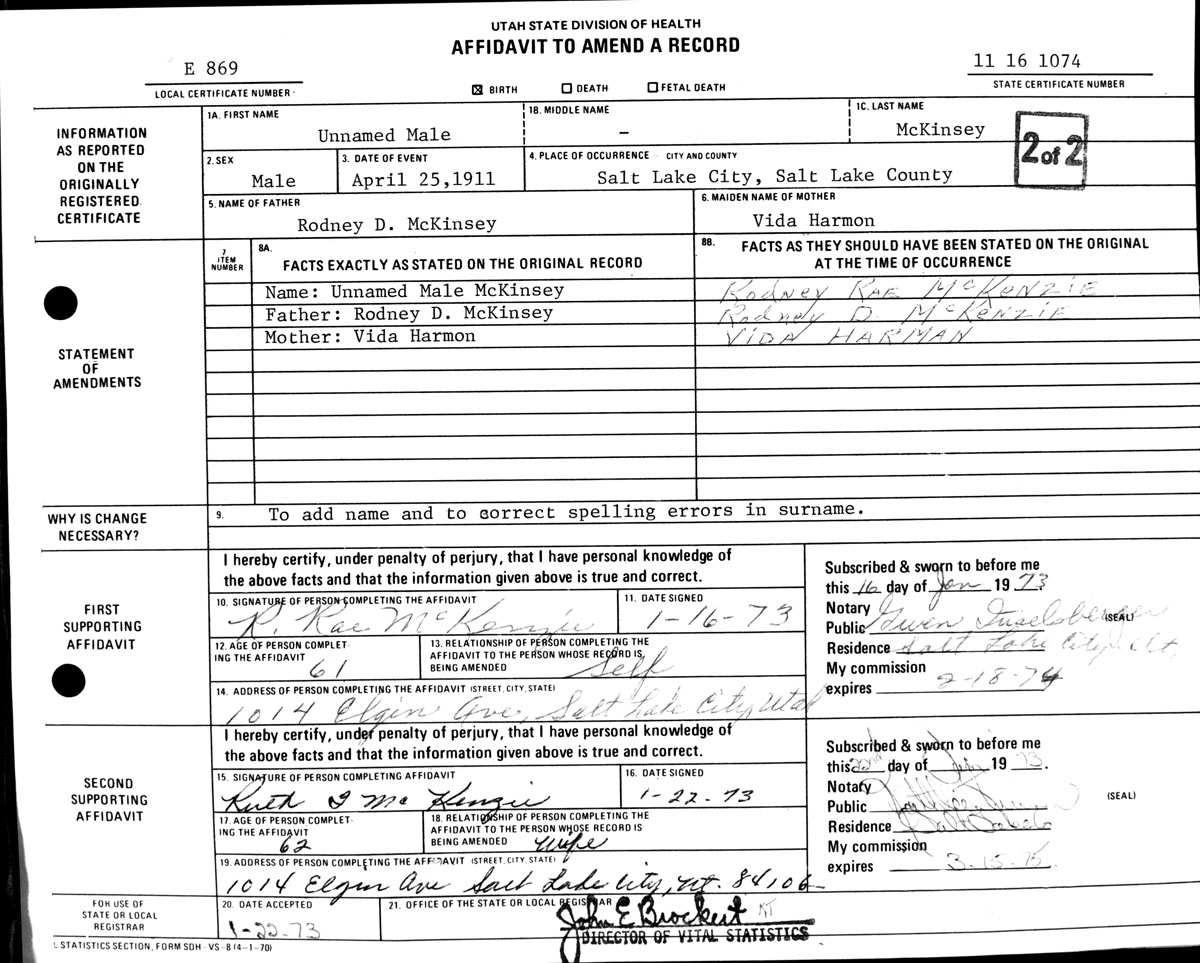 UTAH STATE DIVISION OF HEALTH
AFFIDAVIT TO AMEND A RECORD
E 869
LOCAL CERTIFICATE NUMBER
☒ BIRTH ☐ DEATH ☐ FETAL DEATH
11 16 1074
STATE CERTIFICATE NUMBER
INFORMATION
AS REPORTED
ON THE
ORIGINALLY
REGISTERED
CERTIFICATE
1A. FIRST NAME
Unnamed Male
1B. MIDDLE NAME
–
1C. LAST NAME
McKinsey
2 of 2
2. SEX
Male
3. DATE OF EVENT
April 25,1911
4. PLACE OF OCCURRENCE CITY AND COUNTY
Salt Lake City, Salt Lake County
5. NAME OF FATHER
Rodney D. McKinsey
6. MAIDEN NAME OF MOTHER
Vida Harmon
STATEMENT
OF
AMENDMENTS
7
ITEM
NUMBER
8A.
FACTS EXACTLY AS STATED ON THE ORIGINAL RECORD
8B. FACTS AS THEY SHOULD HAVE BEEN STATED ON THE ORIGINAL
AT THE TIME OF OCCURRENCE
Name: Unnamed Male McKinsey
RODNEY RAE McKENZIE
Father: Rodney D. McKinsey
RODNEY D. McKENZIE
Mother: Vida Harmon
VIDA HARMAN
WHY IS CHANGE
NECESSARY?
9. To add name and to correct spelling errors in surname.
FIRST
SUPPORTING
AFFIDAVIT
I hereby certify, under penalty of perjury, that I have personal knowledge of
the above facts and that the information given above is true and correct.
10. SIGNATURE OF PERSON COMPLETING THE AFFIDAVIT
R. Rae McKenzie
11. DATE SIGNED
1-16-73
12. AGE OF PERSON COMPLET-
ING THE AFFIDAVIT
61
13. RELATIONSHIP OF PERSON COMPLETING THE
AFFIDAVIT TO THE PERSON WHOSE RECORD IS
BEING AMENDED
Self
14. ADDRESS OF PERSON COMPLETING THE AFFIDAVIT (STREET, CITY, STATE)
1014 Elgin Ave, Salt Lake City, Utah
Subscribed & sworn to before me
this 16 day of Jan 19 73
Notary
Public Gwen (SEAL)
Residence Salt Lake City, Ut.
My commission
expires 2-18-74
SECOND
SUPPORTING
AFFIDAVIT
I hereby certify, under penalty of perjury, that I have personal knowledge of
the above facts and that the information given above is true and correct.
15. SIGNATURE OF PERSON COMPLETING AFFIDAVIT
Ruth I McKenzie
16. DATE SIGNED
1-22-73
17. AGE OF PERSON COMPLET-
ING THE AFFIDAVIT
62
18. RELATIONSHIP OF PERSON COMPLETING THE
AFFIDAVIT TO THE PERSON WHOSE RECORD IS
BEING AMENDED
wife
19. ADDRESS OF PERSON COMPLETING THE AFFIDAVIT (STREET, CITY, STATE)
1014 Elgin Ave Salt Lake City, Ut. 84106
Subscribed & sworn to before me
this 22nd day of 19 73.
Notary
Public (SEAL)
Residence
My commission
expires 3-15-75
FOR USE OF
STATE OR LOCAL
REGISTRAR
20. DATE ACCEPTED
1-22-73
21. OFFICE OF THE STATE OR LOCAL REGISTRAR
John E Brockert
DIRECTOR OF VITAL STATISTICS
STATISTICS SECTION, FORM SDH-VS-8 (4-1-70)